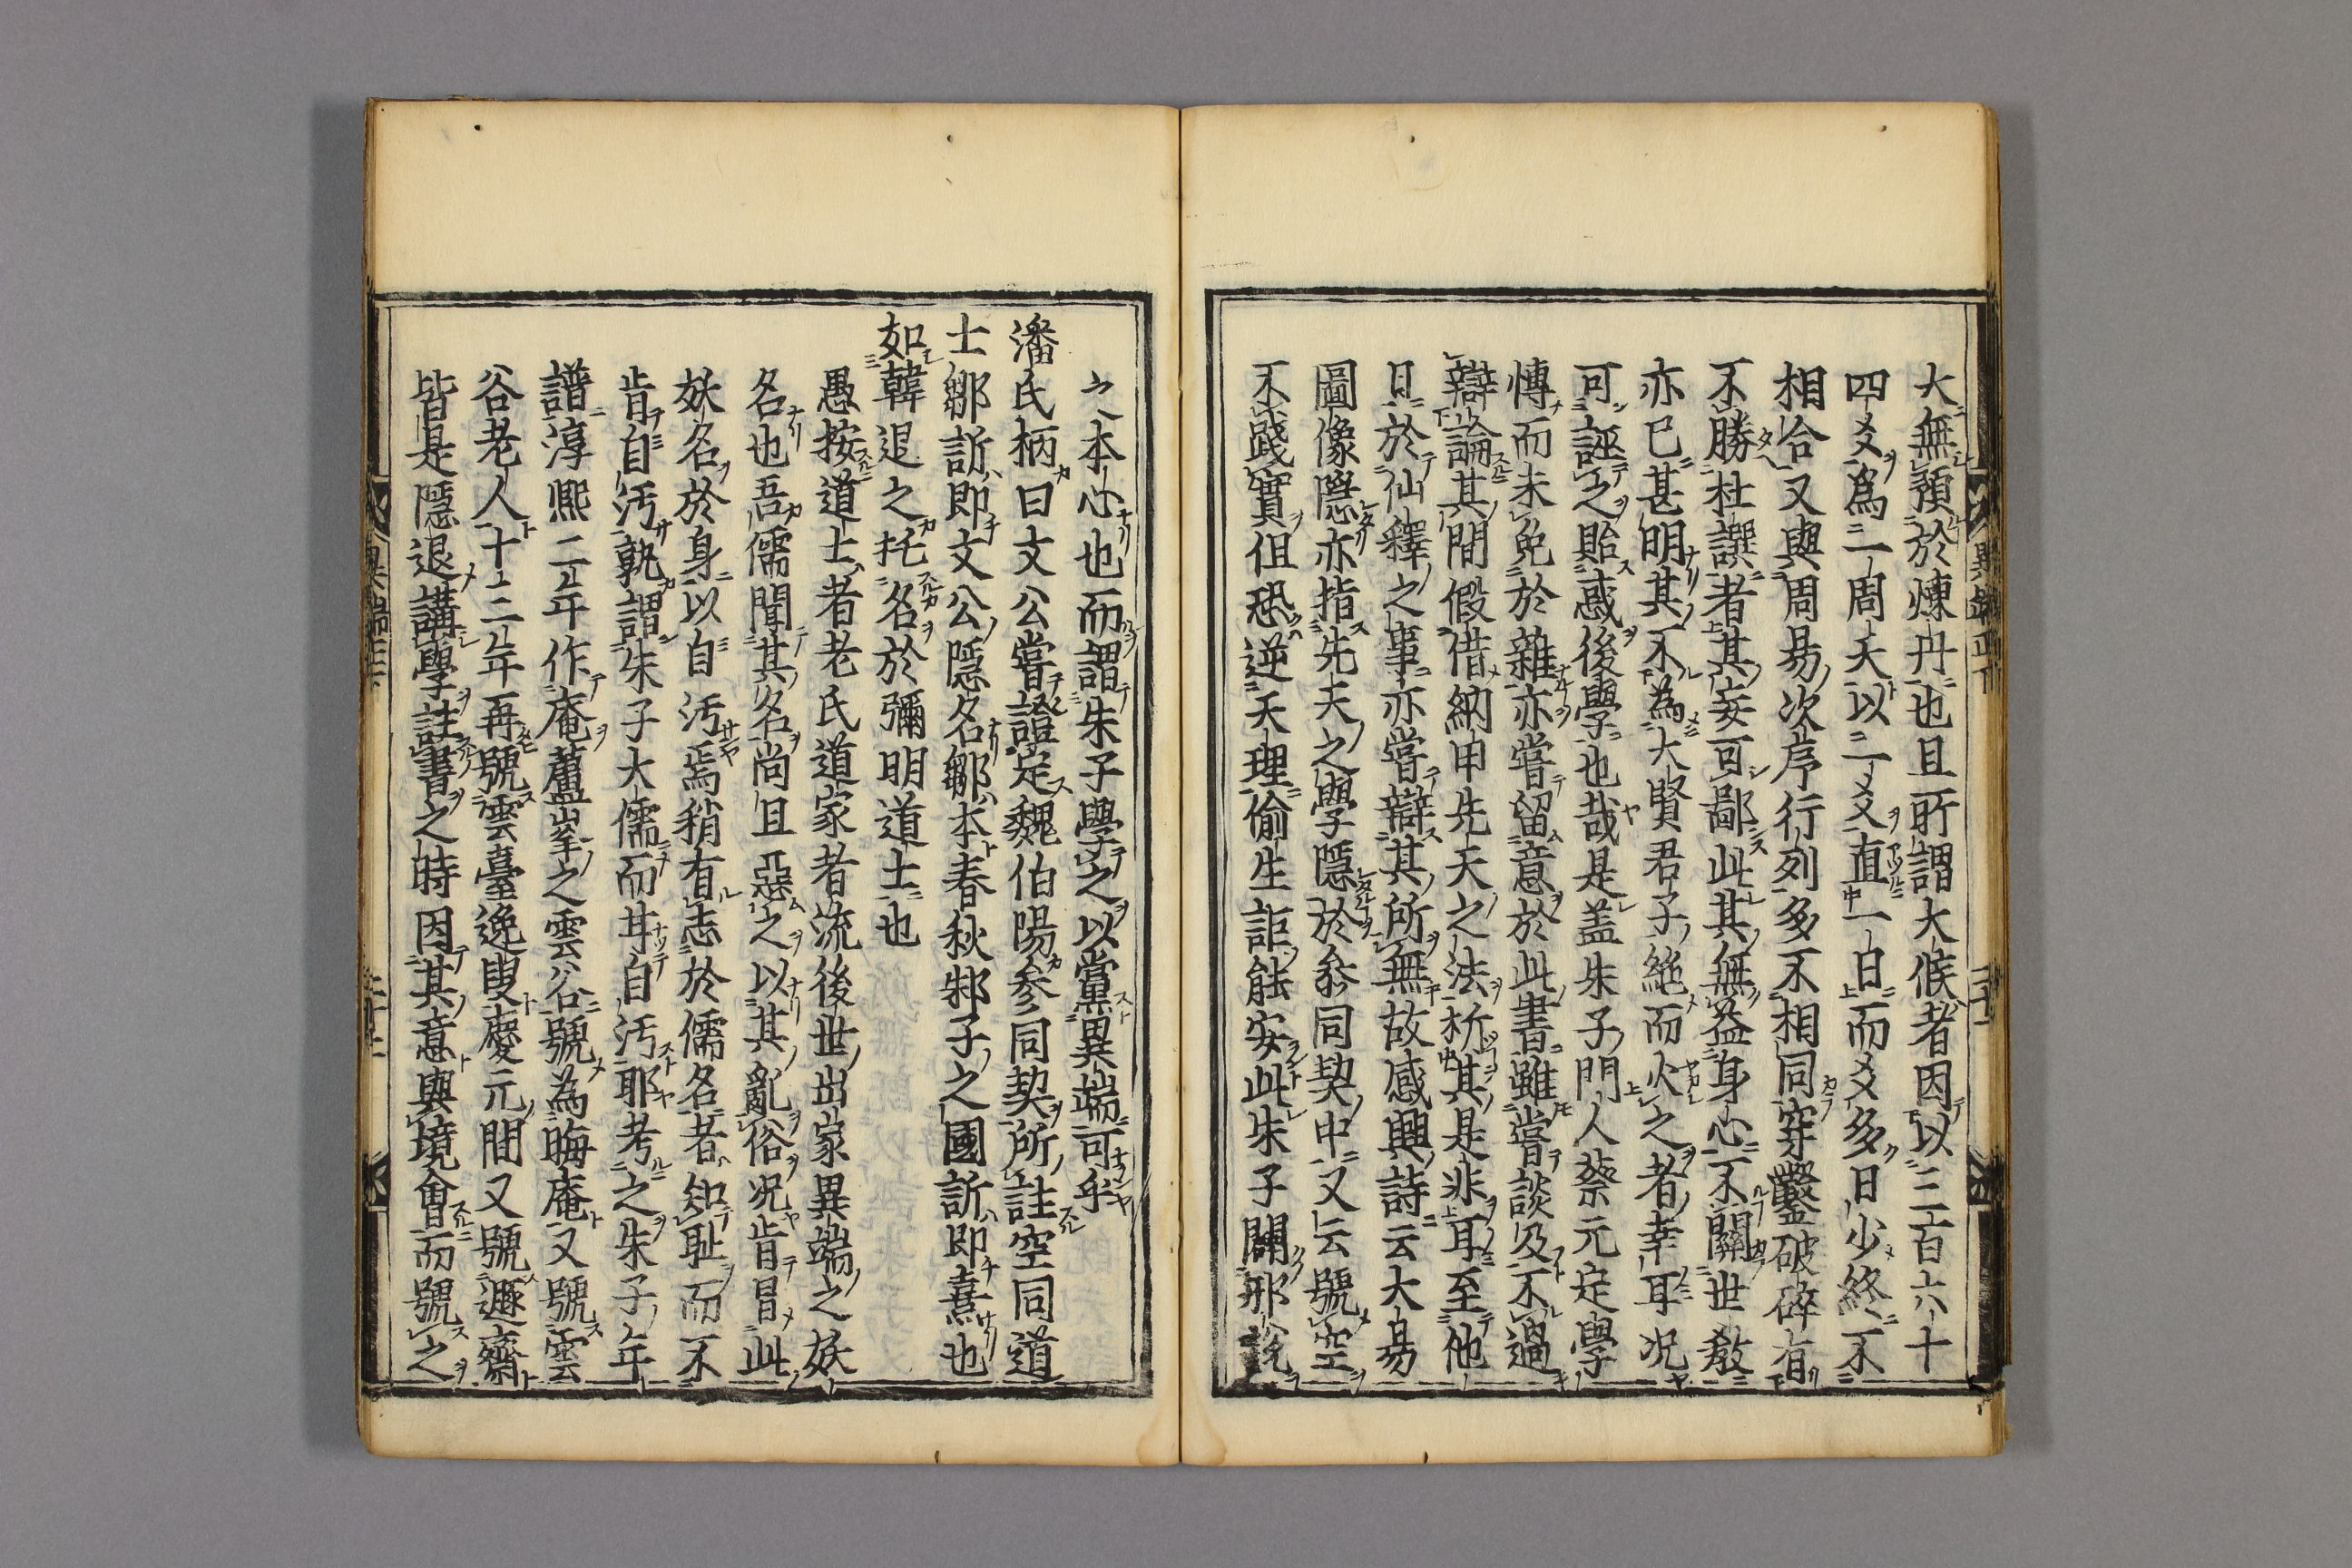 大無預於煉丹也且所謂大候者因以三百六十
四爻爲一周天以二爻直一日而爻多日少終不
相合又與周易次序行列多不相同穿鑿破碎有
不勝杜譔者其妄可鄙此其無益身心不關世敎
亦已甚明其不為大賢君子絶而火之者幸耳況
可誣之貽惑後學也哉是盖朱子門人蔡元定學
慱而未免於雜亦嘗留意於此書雖嘗談及不過
辯論其間假借納甲先天之法析其是非耳至他
日於仙釋之事亦嘗辯其所無故感興詩云大易
圖像隱亦指先天之學隱於叅同契中又云號空
不踐實但恐逆天理偷生詎能安此朱子闢邪說
之本心也而謂朱子學之以黨異端可乎
潘氏柄曰文公嘗證定魏伯陽參同契所註空同道
士鄒訢即文公隱名鄒本春秋邾子之國訢即熹也
如韓退之托名於彌明道士也
愚按道士者老氏道家者流後世出家異端之妖
名也吾儒聞其名尚且惡之以其亂俗況肯冒此
妖名於身以自汚焉稍有志於儒名者知耻而不
肯自汚孰謂朱子大儒而甘自汚耶考之朱子年
譜淳熙二年作庵蘆峯之雲谷號為晦庵又號雲
谷老人十二年再號雲臺逸叟慶元間又號遯齋
皆是隱退講學註書之時因其意與境會而號之